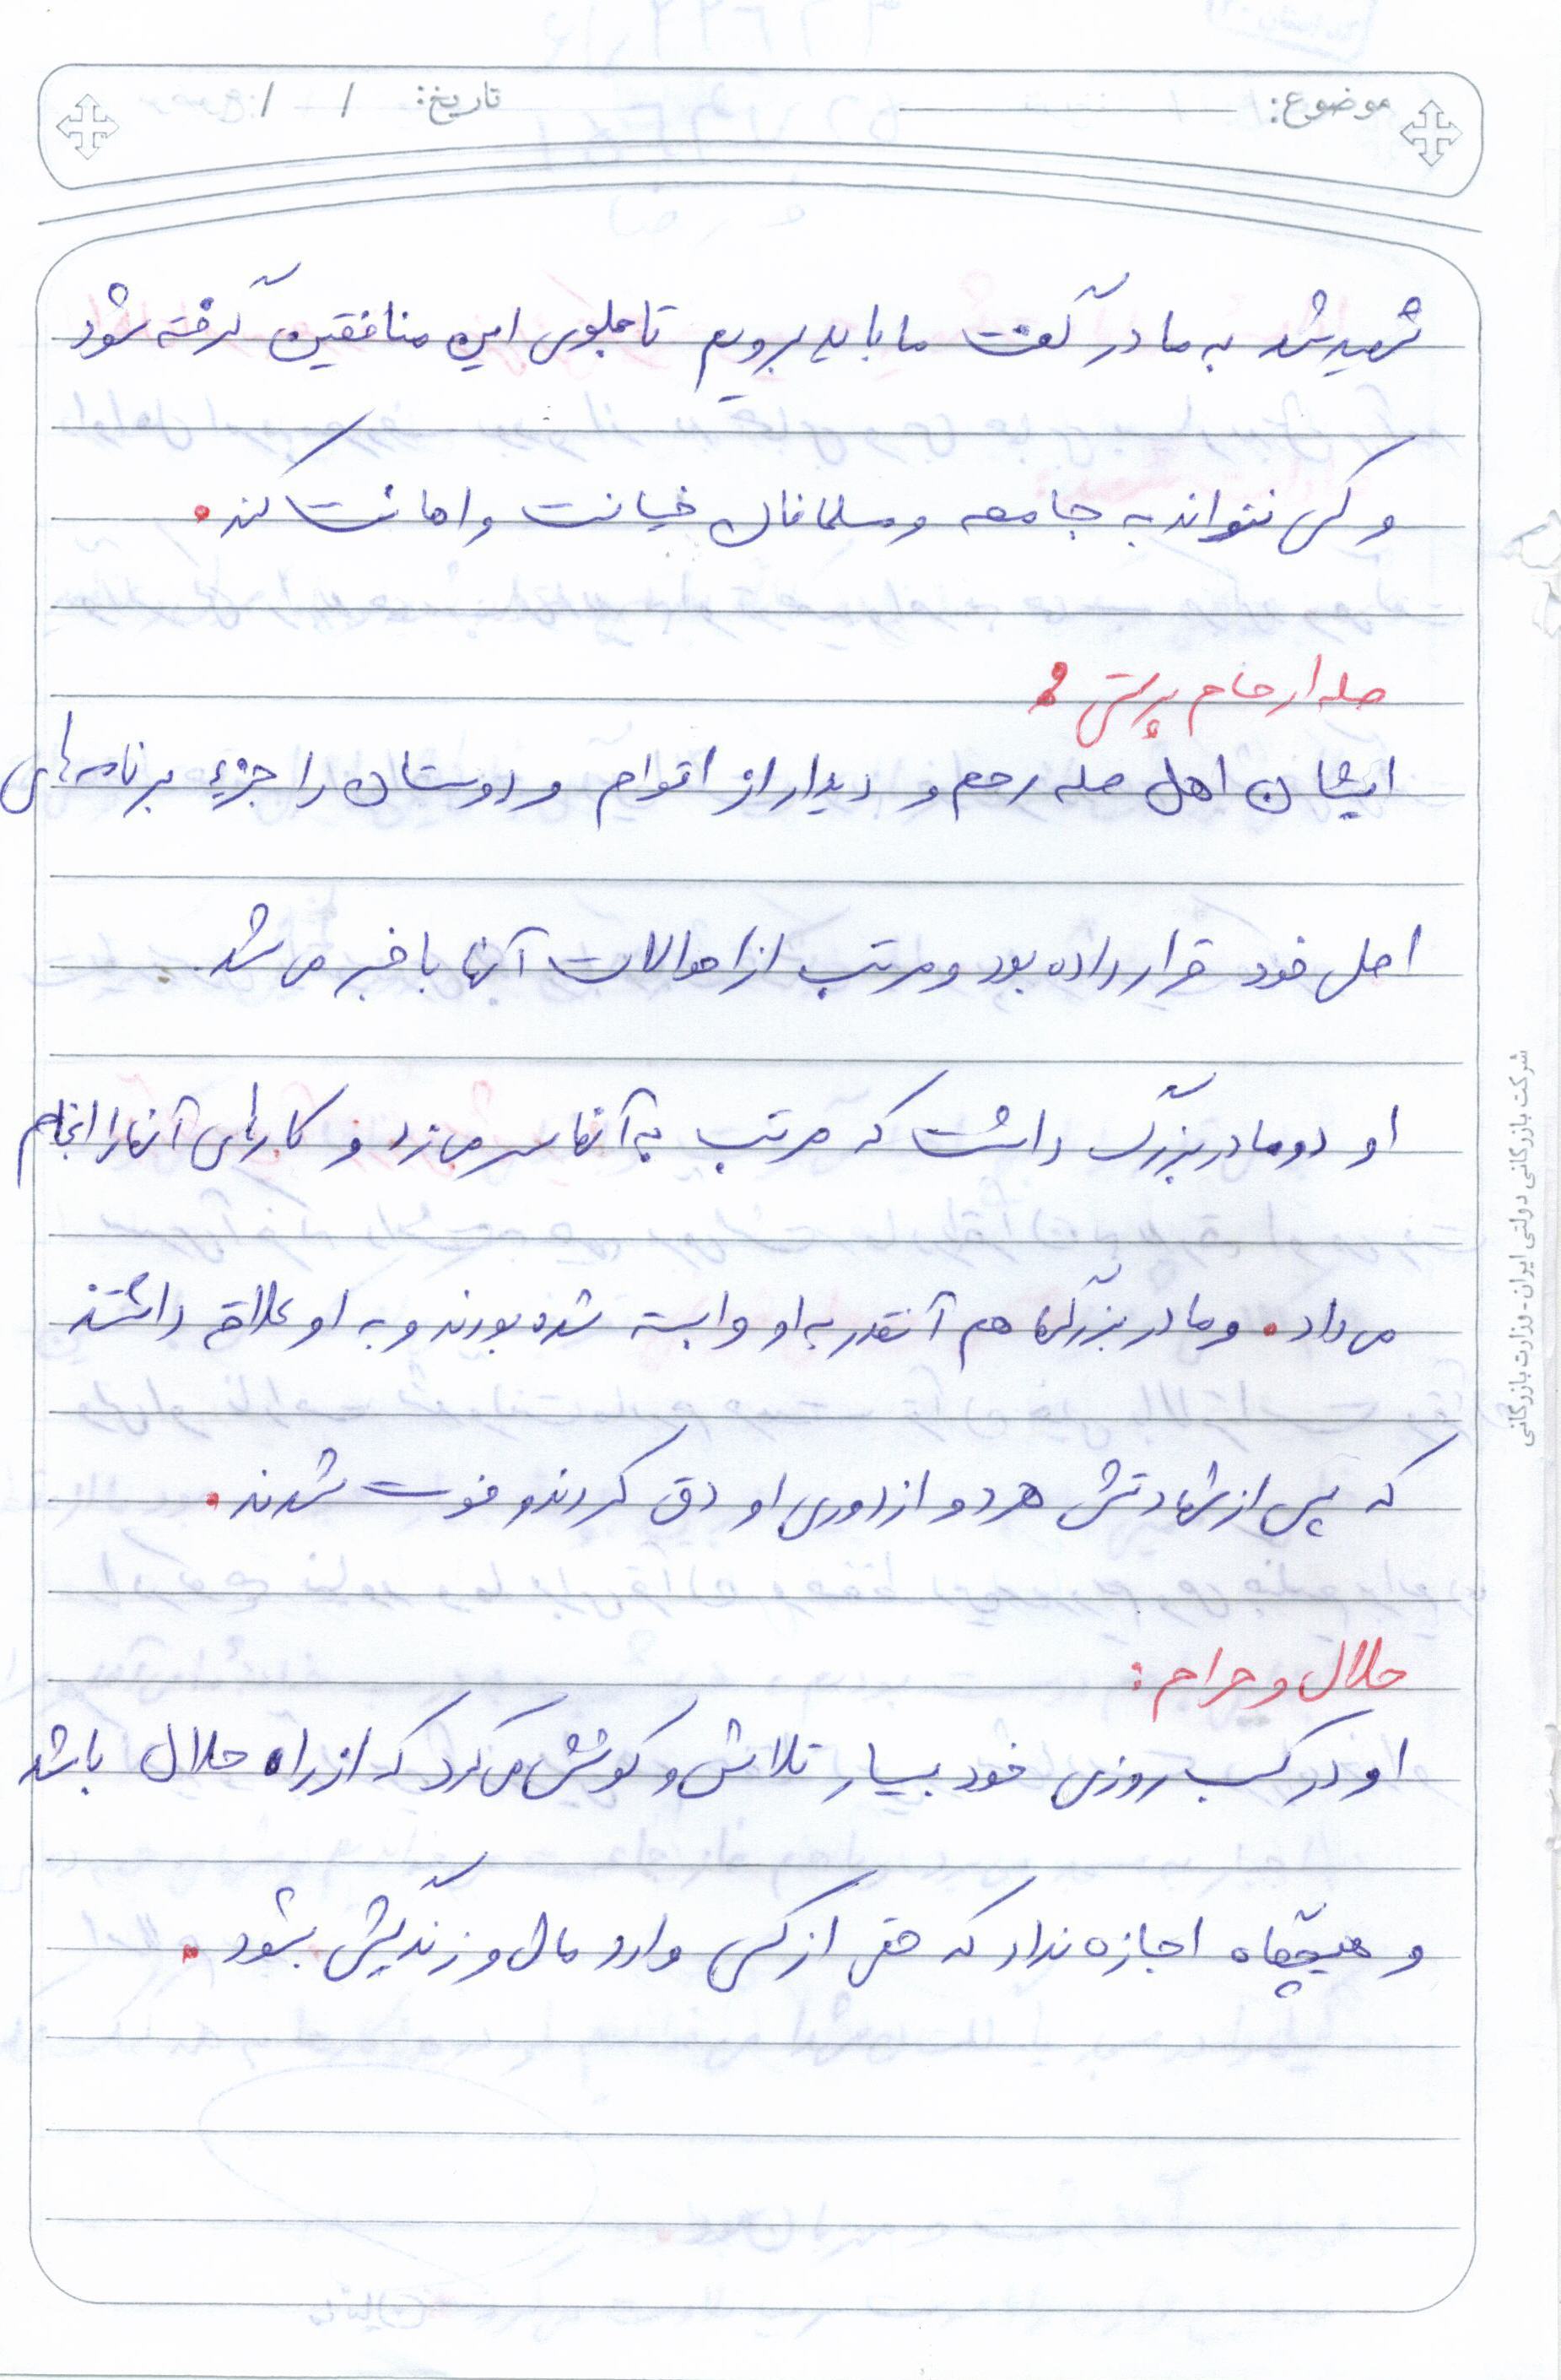 موضوع:
تاریخ: / /
شهید شد به مادر گفت ما باید برویم تا جلوی این منافقین گرفته شود
و کسی نتواند به جامعه و مسلمانان خیانت و اهانت کند.
صله ارحام پرسش:
ایشان اهل صله رحم و دیدار از اقوام و دوستان را جزء برنامه های
اصلی خود قرار داده بود و مرتب از احوالات آنها با خبر می شد.
او دو مادر بزرگ داشت که مرتب به آنها سر می زد و کارهای آنها را انجام
می داد. و مادر بزرگها هم آنقدر به او وابسته شده بودند و به او علاقه داشتند
که پس از شهادتش هر دو از دوری او دق کردند و فوت شدند.
حلال و حرام:
او در کسب روزی خود بسیار تلاش و کوشش می کرد که از راه حلال باشد
و هیچگاه اجازه نداد که حقی از کسی وارد مال و زندگیش بشود.
شرکت بازرگانی دولتی ایران - وزارت بازرگانی